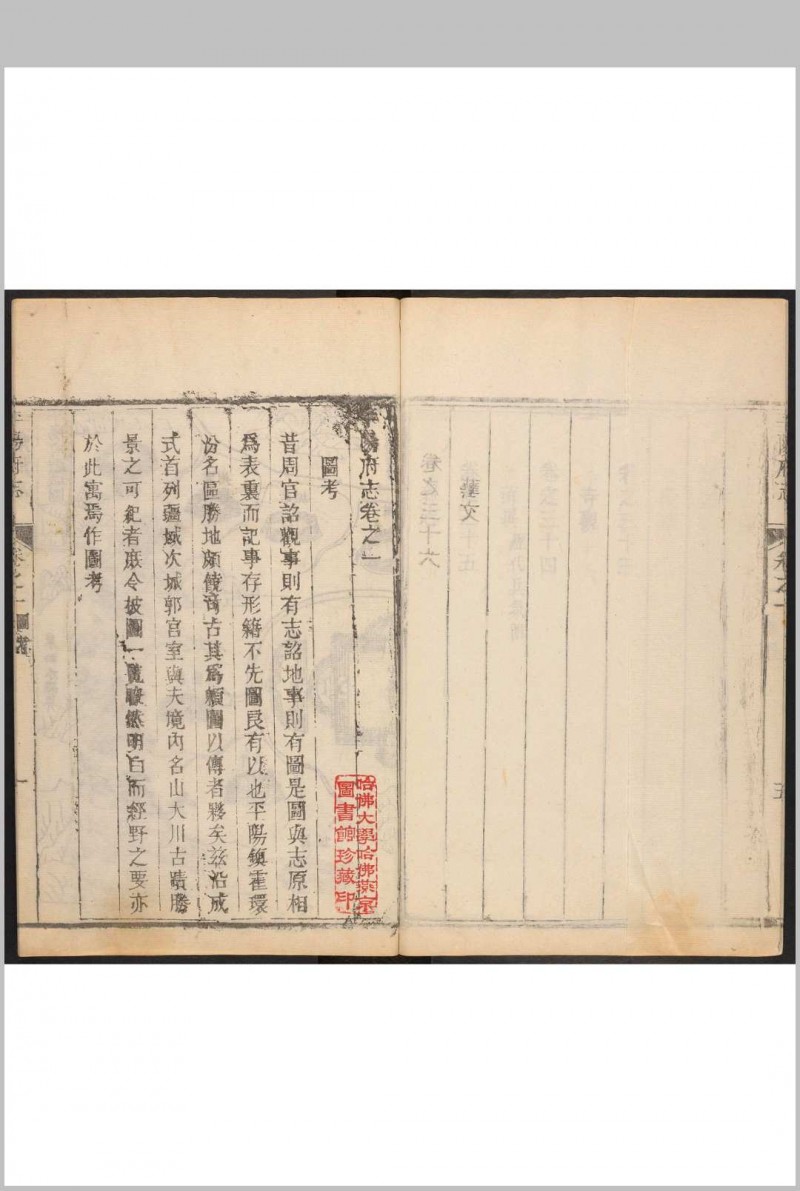 卷之一
五
藝文
卷之三十六
平陽府志卷之一
圖考
昔周官詔觀事則有志詔地事則有圖是圖與志原相
爲表裏而記事存形籍不先圖良有以也平陽鎮霍環
汾名區勝地頗饒音古其爲頼圖以傳者夥矣茲沿成
式首列疆域次城郭宮室與夫境內名山大川古蹟勝
景之可紀者庶令披圖一覽暸然明白而經野之要亦
於此寓焉作圖考
哈佛大學哈佛燕京
圖書館珍藏印
陽府志
卷之一
圖考
一